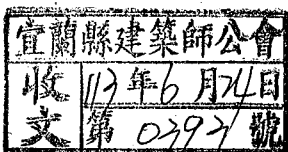 宜蘭縣建築師公會
收文 113年6月24日
第 0393 號